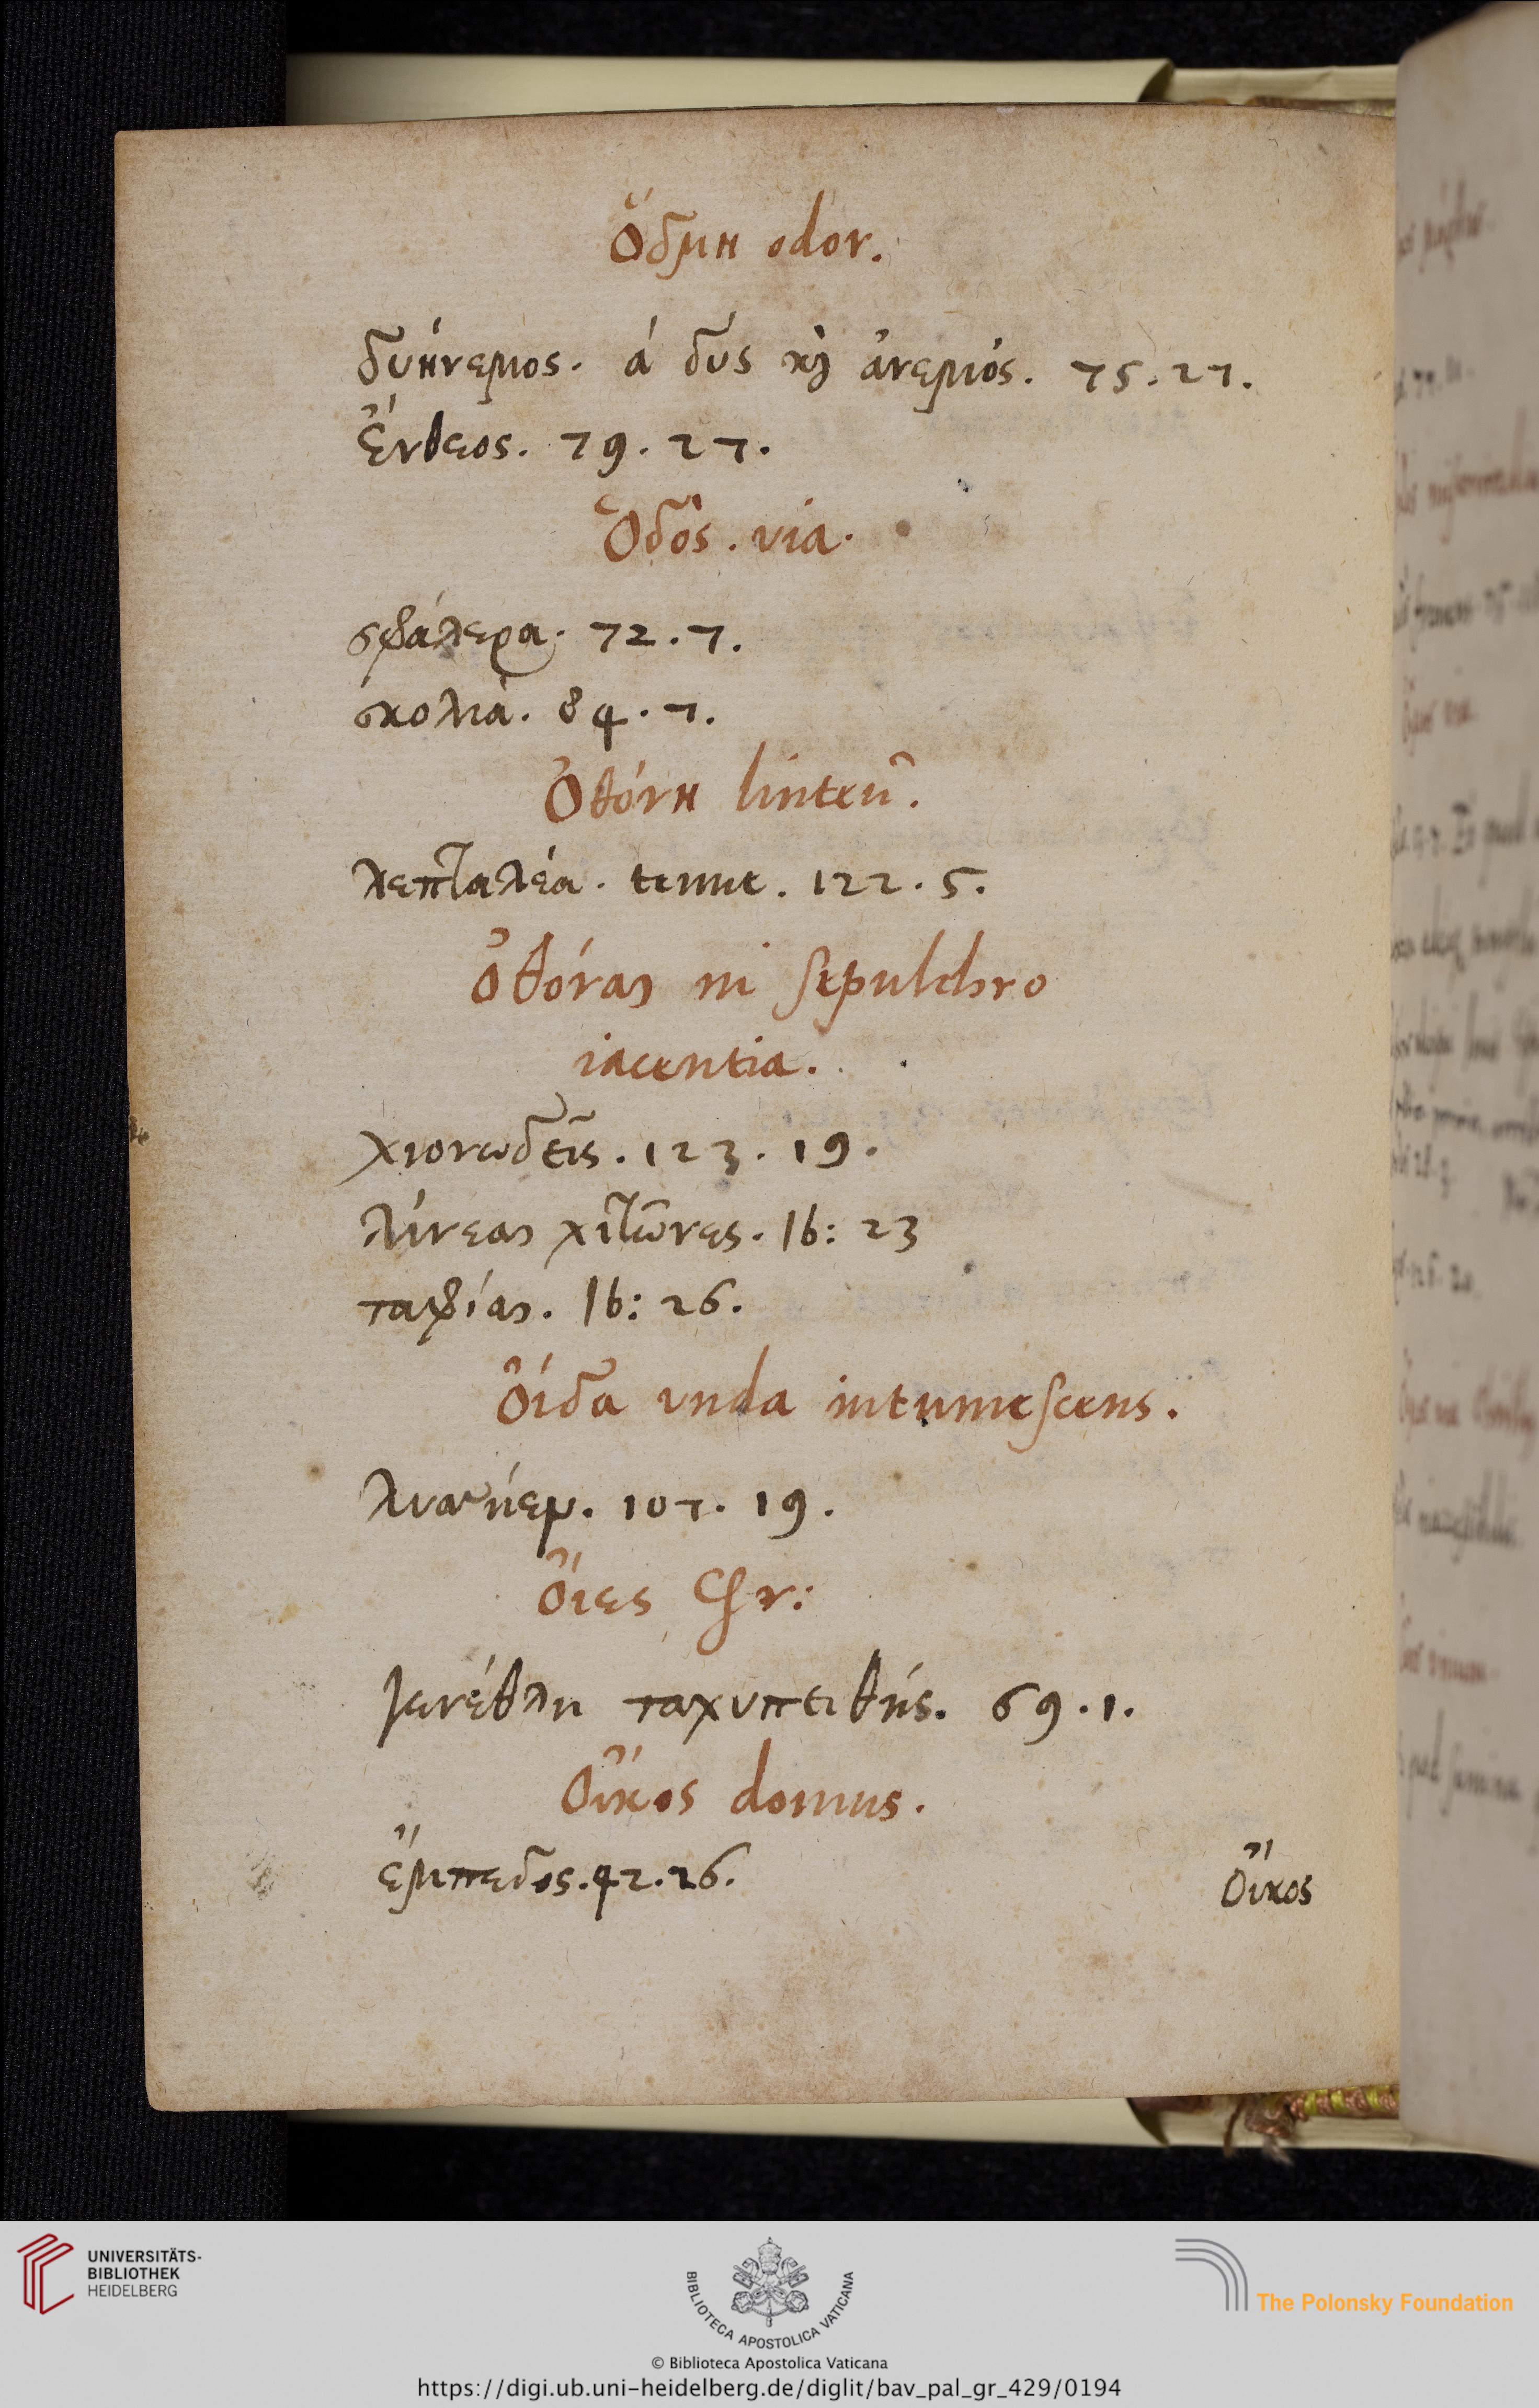 Ὄδμη odor.
δυήνεμος. ἀ δύς κὶ ἀνεμιός. 75.27.
Ἔνθεος. 79.27.
Ὁδὸς. via.
σφάλερα. 72.7.
σκολιὰ. 84.7.
Ὀθόνη linteu᷃.
λεπταλέα. tenue. 122.5.
Ὀθόναι in sepulchro
iacentia.
χιονώδεις. 123.19.
λίνεαι χιτῶνες. Ib: 23
ταφίαι. Ib: 26.
Ὄιδα unda intumescens.
107.19.
Ὄιες Chr:
γενέθλη ταχυπειθής. 69.1.
Οἶκος domus.
ἔμπεδος. 42.26.
Οἶκος
UNIVERSITÄTS-
BIBLIOTHEK
HEIDELBERG
BIBLIOTECA APOSTOLICA VATICANA
The Polonsky Foundation
© Biblioteca Apostolica Vaticana
https://digi.ub.uni-heidelberg.de/diglit/bav_pal_gr_429/0194